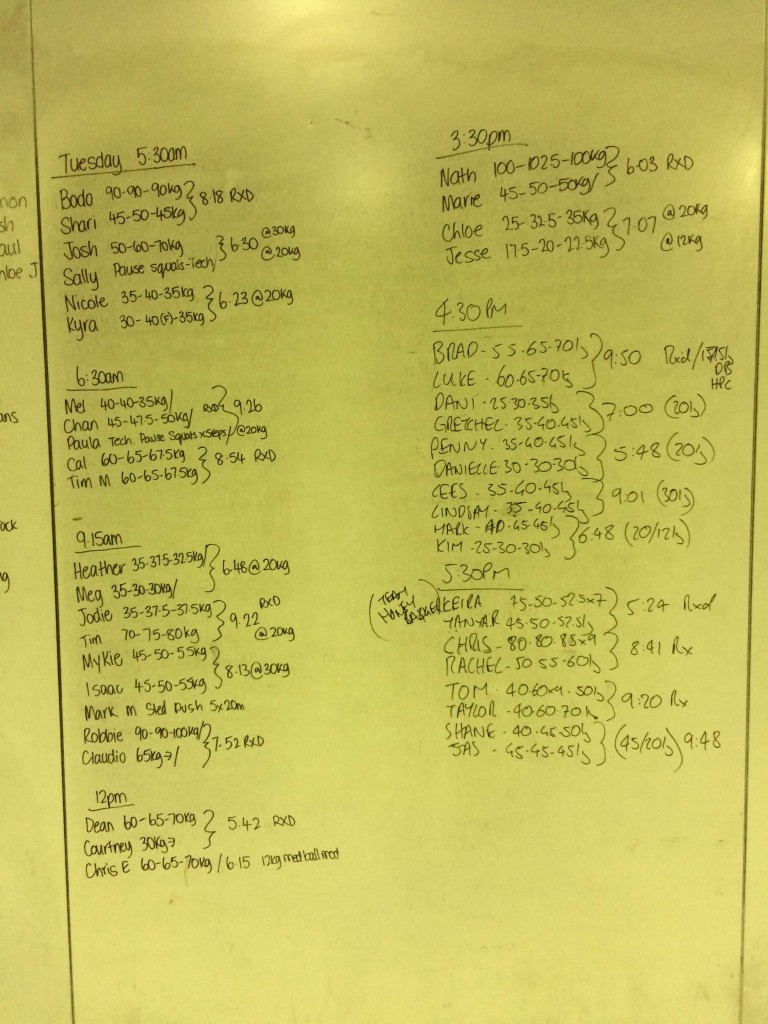 non
sh
aul
hloe J
ans
ock
ng
Tuesday 5:30am
Bodo 90-90-90kg } 8.18 RXD
Shari 45-50-45kg
Josh 50-60-70kg } 6.30 @30kg
Sally Pause squats-Tech @20kg
Nicole 35-40-35kg } 6.23 @20kg
Kyra 30-40(F)-35kg
6:30am
Mel 40-40-35kg/
Chan 45-47.5-50kg/ RXD } 9.26
Paula Tech. Pause Squats x5reps/ @20kg
Cal 60-65-67.5kg } 8.54 RXD
Tim M 60-65-67.5kg
9.15am
Heather 35-37.5-32.5kg/ } 6.48@20kg
Meg 35-30-30kg/
Jodie 35-37.5-37.5kg } 9.22 RXD
Tim 70-75-80kg @20kg
Mykie 45-50-55kg } 8.13@30kg
Isaac 45-50-55kg
Mark M Sled Push 5x20m
Robbie 90-90-100kg/ } 7.52 RXD
Claudio 65kg→/
12pm
Dean 60-65-70kg } 5.42 RXD
Courtney 30kg→
Chris E 60-65-70kg / 6.15 12kg medball mod
3:30pm
Nath 100-102.5-100kg } 6.03 RXD
Marie 45-50-50kg/
Chloe 25-32.5-35kg } 7.07 @20kg
Jesse 17.5-20-22.5kg @12kg
4.30PM
BRAD - 55.65.70kg } 9:50 Rxd/
LUKE - 60.65.70kg DB
HPC
DANI - 25.30.35kg } 7:00 (20kg)
GRETCHEL - 35.40.45kg
PENNY - 35.40.45kg } 5:48 (20kg)
DANIELLE - 30.30.30kg
CEES - 35.40.45kg } 9:01 (30kg)
LINDSAY - 35.40.45kg
MARK - 40.45.45kg } 6:48 (20/12kg)
KIM - 25.30.30kg
5:30PM
(TEAM HONEY BADGER) KEIRA 45.50-52.5x7 } 5:24 Rxd
TANYAR 45.50.52.5kg
CHRIS - 80.80.85x9 } 8:41 Rx
RACHEL - 50.55-60kg
TOM - 40.60x9.50kg } 9:20 Rx
TAYLOR - 40.60.70kg
SHANE - 40.45.50kg } (45/20kg) 9:48
JAS - 45.45.45kg